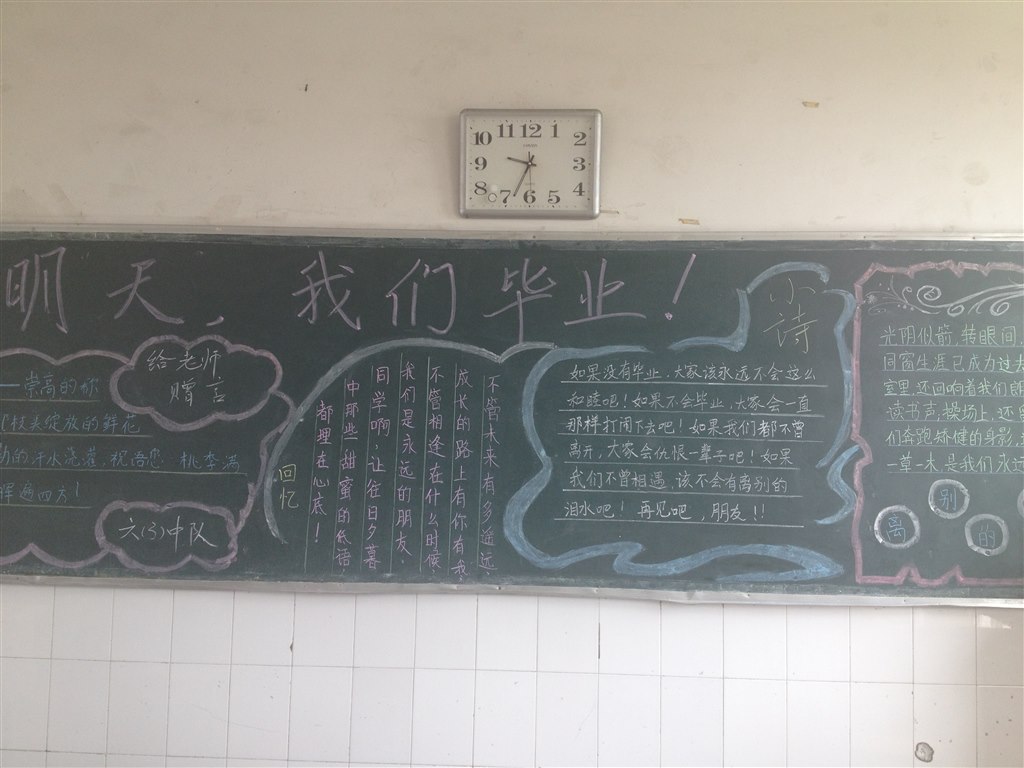 10 11 12 1 2
9 3
8 7 6 5 4
明天，我们毕业！
给老师
赠言
崇高的你
枝头绽放的鲜花
的汗水浇灌 祝语您 桃李满
四方！
六(3)中队
回忆
不管未来有多遥远
成长的路上有你有我，
不管相逢在什么时候
我们是永远的朋友，
同学啊，让往日夕暮
中那些甜蜜的低语
都埋在心底！
小诗
如果没有毕业，大家该永远不会这么
和睦吧！如果不会毕业，大家会一直
那样打闹下去吧！如果我们都不曾
离开，大家会仇恨一辈子吧！如果
我们不曾相遇，该不会有离别的
泪水吧！再见吧，朋友！！
光阴似箭，转眼间，
同窗生涯已成为过去
室里，还回响着我们朗
读书声，操场上，还
们奔跑矫健的身影，
一草一木，是我们永远
离
别
的